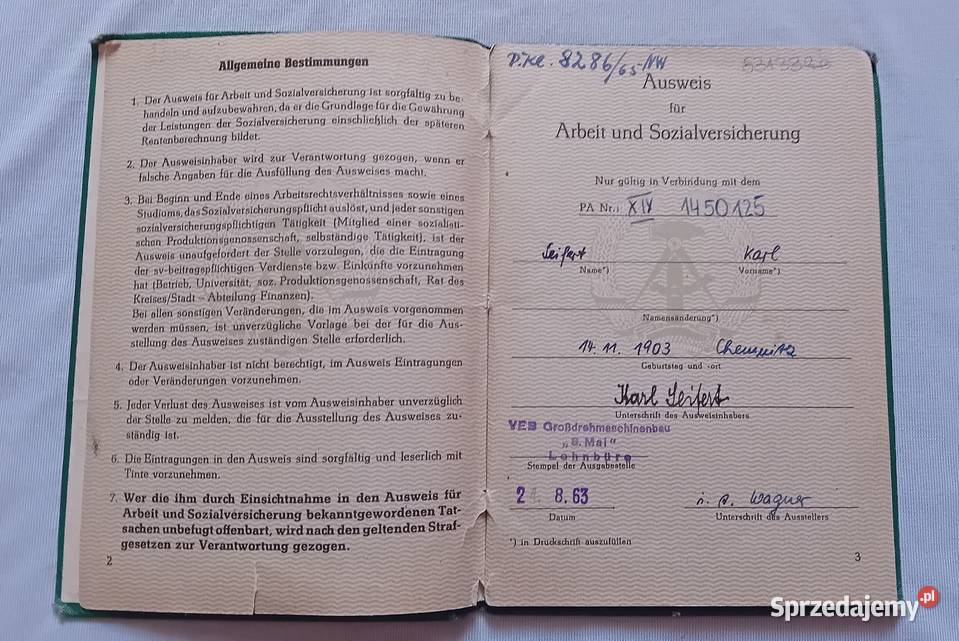 Allgemeine Bestimmungen
1. Der Ausweis für Arbeit und Sozialversicherung ist sorgfältig zu be-
handeln und aufzubewahren, da er die Grundlage für die Gewährung
der Leistungen der Sozialversicherung einschließlich der späteren
Rentenberechnung bildet.
2. Der Ausweisinhaber wird zur Verantwortung gezogen, wenn er
falsche Angaben für die Ausfüllung des Ausweises macht.
3. Bei Beginn und Ende eines Arbeitsrechtsverhältnisses sowie eines
Studiums, das Sozialversicherungspflicht auslöst, und jeder sonstigen
sozialversicherungspflichtigen Tätigkeit (Mitglied einer sozialisti-
schen Produktionsgenossenschaft, selbständige Tätigkeit), ist der
Ausweis unaufgefordert der Stelle vorzulegen, die die Eintragung
der sv-beitragspflichtigen Verdienste bzw. Einkünfte vorzunehmen
hat (Betrieb, Universität, soz. Produktionsgenossenschaft, Rat des
Kreises/Stadt – Abteilung Finanzen).
Bei allen sonstigen Veränderungen, die im Ausweis vorgenommen
werden müssen, ist unverzügliche Vorlage bei der für die Aus-
stellung des Ausweises zuständigen Stelle erforderlich.
4. Der Ausweisinhaber ist nicht berechtigt, im Ausweis Eintragungen
oder Veränderungen vorzunehmen.
5. Jeder Verlust des Ausweises ist vom Ausweisinhaber unverzüglich
der Stelle zu melden, die für die Ausstellung des Ausweises zu-
ständig ist.
6. Die Eintragungen in den Ausweis sind sorgfältig und leserlich mit
Tinte vorzunehmen.
7. Wer die ihm durch Einsichtnahme in den Ausweis für
Arbeit und Sozialversicherung bekanntgewordenen Tat-
sachen unbefugt offenbart, wird nach den geltenden Straf-
gesetzen zur Verantwortung gezogen.
2
8286/65-NW
Ausweis
für
Arbeit und Sozialversicherung
Nur gültig in Verbindung mit dem
PA Nr.: XIV 1450125
Seifert Karl
Name*) Vorname*)
Namensänderung*)
14. 11. 1903 Chemnitz
Geburtstag und -ort
Karl Seifert
Unterschrift des Ausweisinhabers
VEB Großdrehmaschinenbau
„8. Mai"
Lohnbüro
Stempel der Ausgabestelle
8.63 i. A. Wagner
Datum Unterschrift des Ausstellers
*) in Druckschrift auszufüllen
3
Sprzedajemy.pl